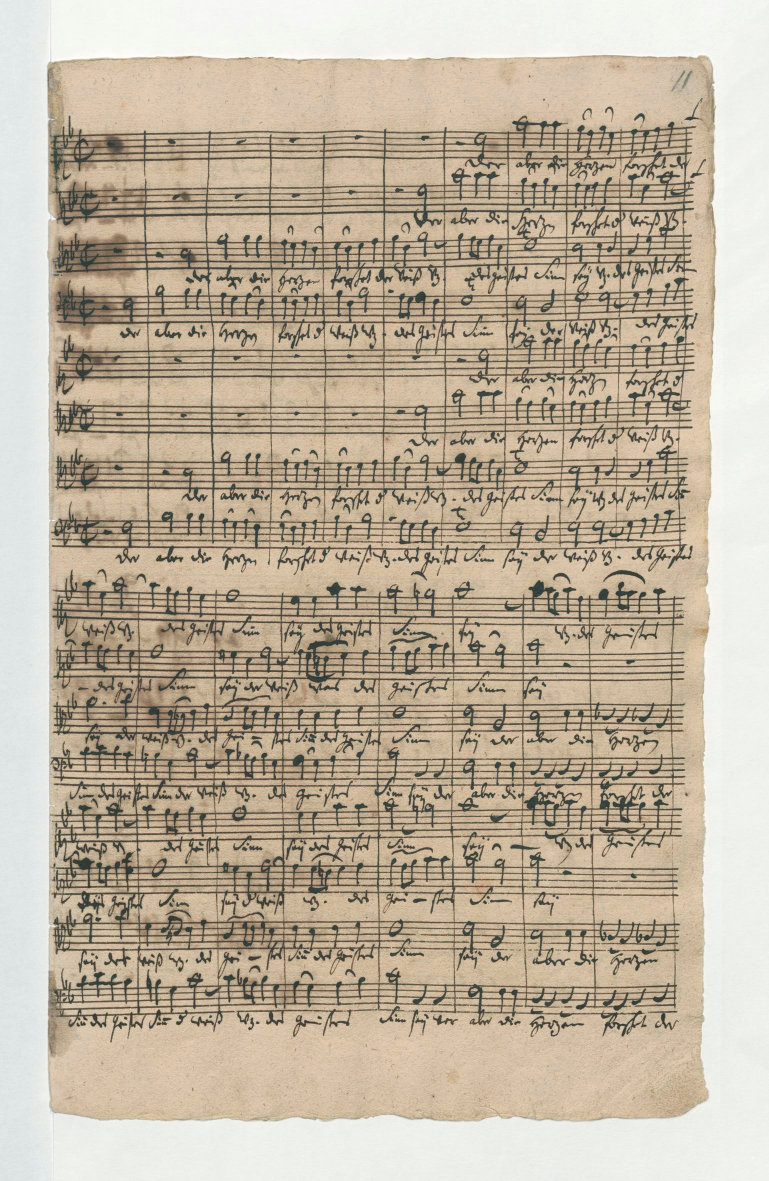 11
Der aber die Herzen forschet der
Der aber die Herzen forschet d weiß
der aber die Herzen forschet der weiß des Geistes Sinn sey des Geistes Sinn
der aber die Herzen forschet d weiß des Geistes Sinn sey der weiß des Geistes
Der aber die Herzen forschet d
Der aber die Herzen forschet d weiß
Der aber die Herzen forschet d weiß des Geistes Sinn sey des Geistes
der aber die Herzen forschet d weiß des Geistes Sinn sey der weiß des Geistes
weiß des Geistes Sinn sey des Geistes Sinn sey des Geistes
des Geistes Sinn sey der weiß was des Geistes Sinn sey
sey der weiß des Geistes des Geistes Sinn sey der aber die Herzen
des Geistes der weiß des Geistes Sinn sey der aber die Herzen forschet der
weiß des Geistes Sinn sey des Geistes Sinn sey des Geistes
Geistes Sinn sey d weiß des Geistes Sinn sey
sey der weiß des Geistes des Geistes Sinn sey der aber die Herzen
des Geistes d weiß des Geistes Sinn sey der aber die Herzen forschet der